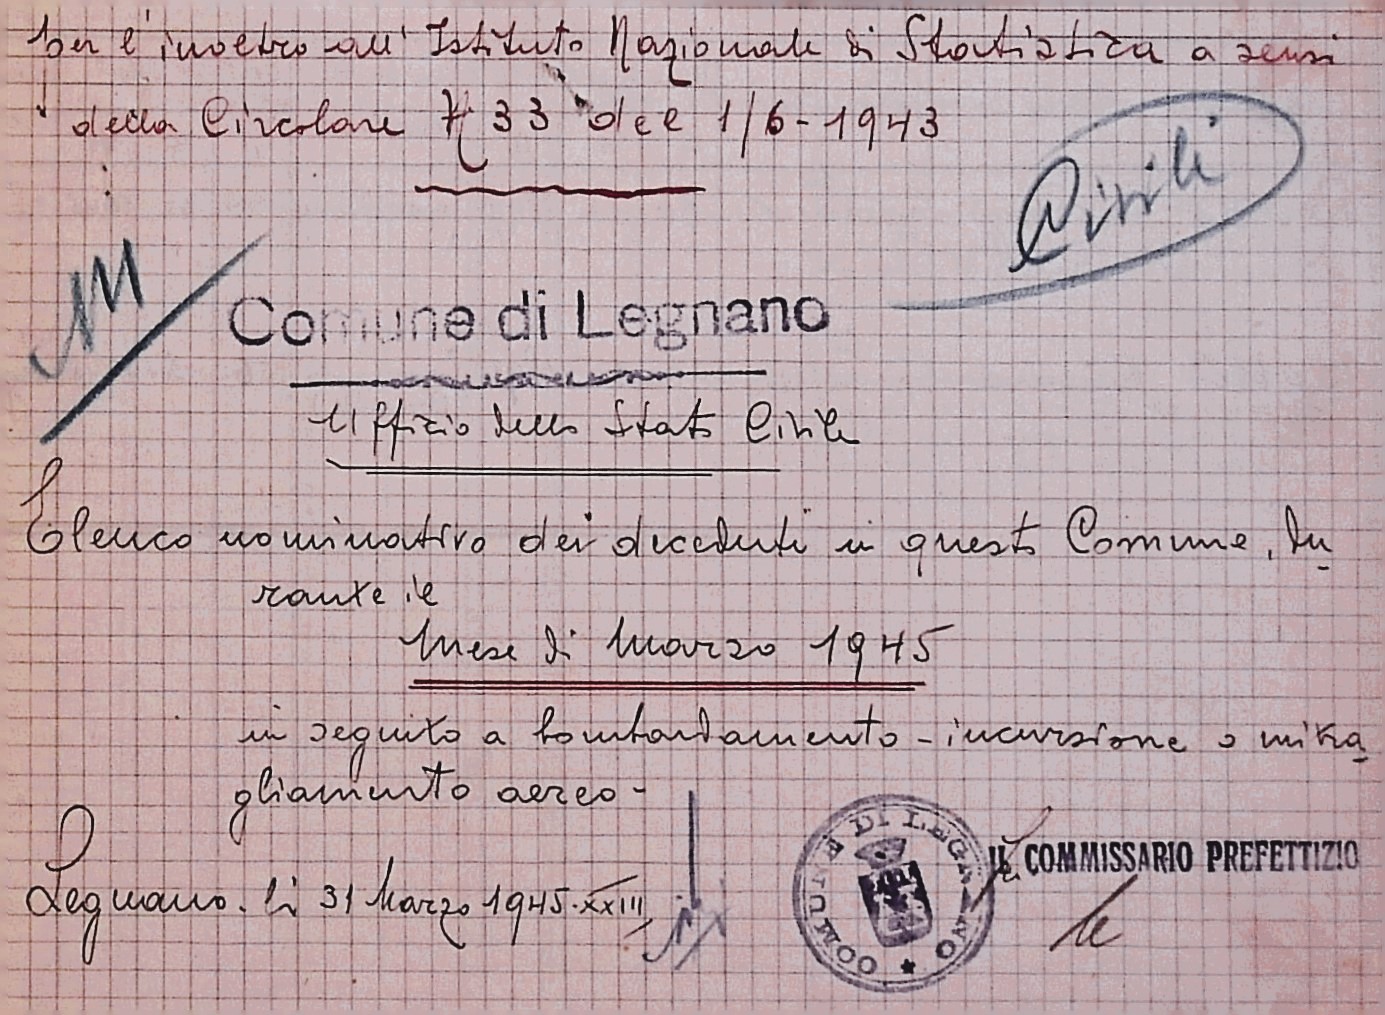 Per l'inoltro all'Istituto Nazionale di Statistica a sensi
della Circolare N 33 del 1/6-1943
Civili
M
Comune di Legnano
Ufficio dello Stato Civile
Elenco nominativo dei deceduti in questo Comune, du
rante il
Mese di Marzo 1945
in seguito a bombardamento - incursione o mitra
gliamento aereo -
COMUNE DI LEGNANO
IL COMMISSARIO PREFETTIZIO
Legnano. li 31 Marzo 1945.XXIII